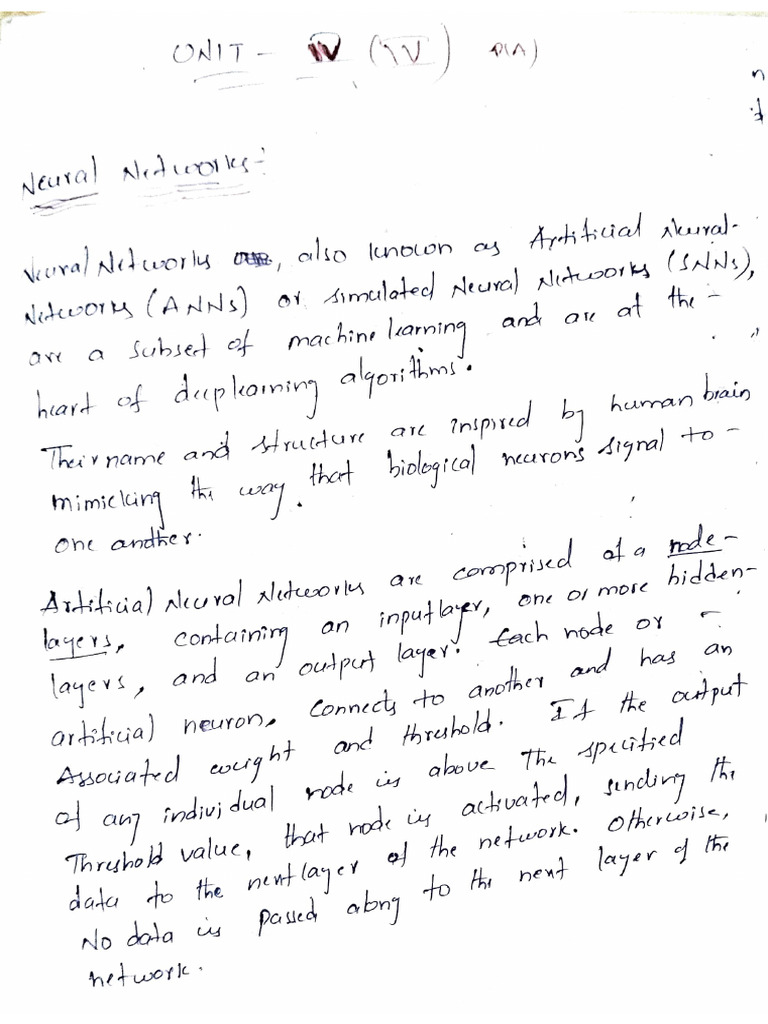 UNIT - IV (IV) P(A)
n
Neural Networks:-
Neural Networks, also known as Artificial Neural-
Networks (ANNs) or simulated Neural Networks (SNNs),
are a subset of machine learning and are at the -
heart of deeplearning algorithms.
Their name and structure are inspired by human brain
mimicking the way that biological neurons signal to -
one another.
Artificial Neural Networks are comprised of a node-
layers, containing an inputlayer, one or more hidden-
layers, and an output layer. Each node or -
artificial neuron, connects to another and has an
Associated weight and threshold. If the output
of any individual node is above The specified
Threshold value, that node is activated, sending the
data to the next layer of the network. Otherwise,
No data is passed along to the next layer of the
network.